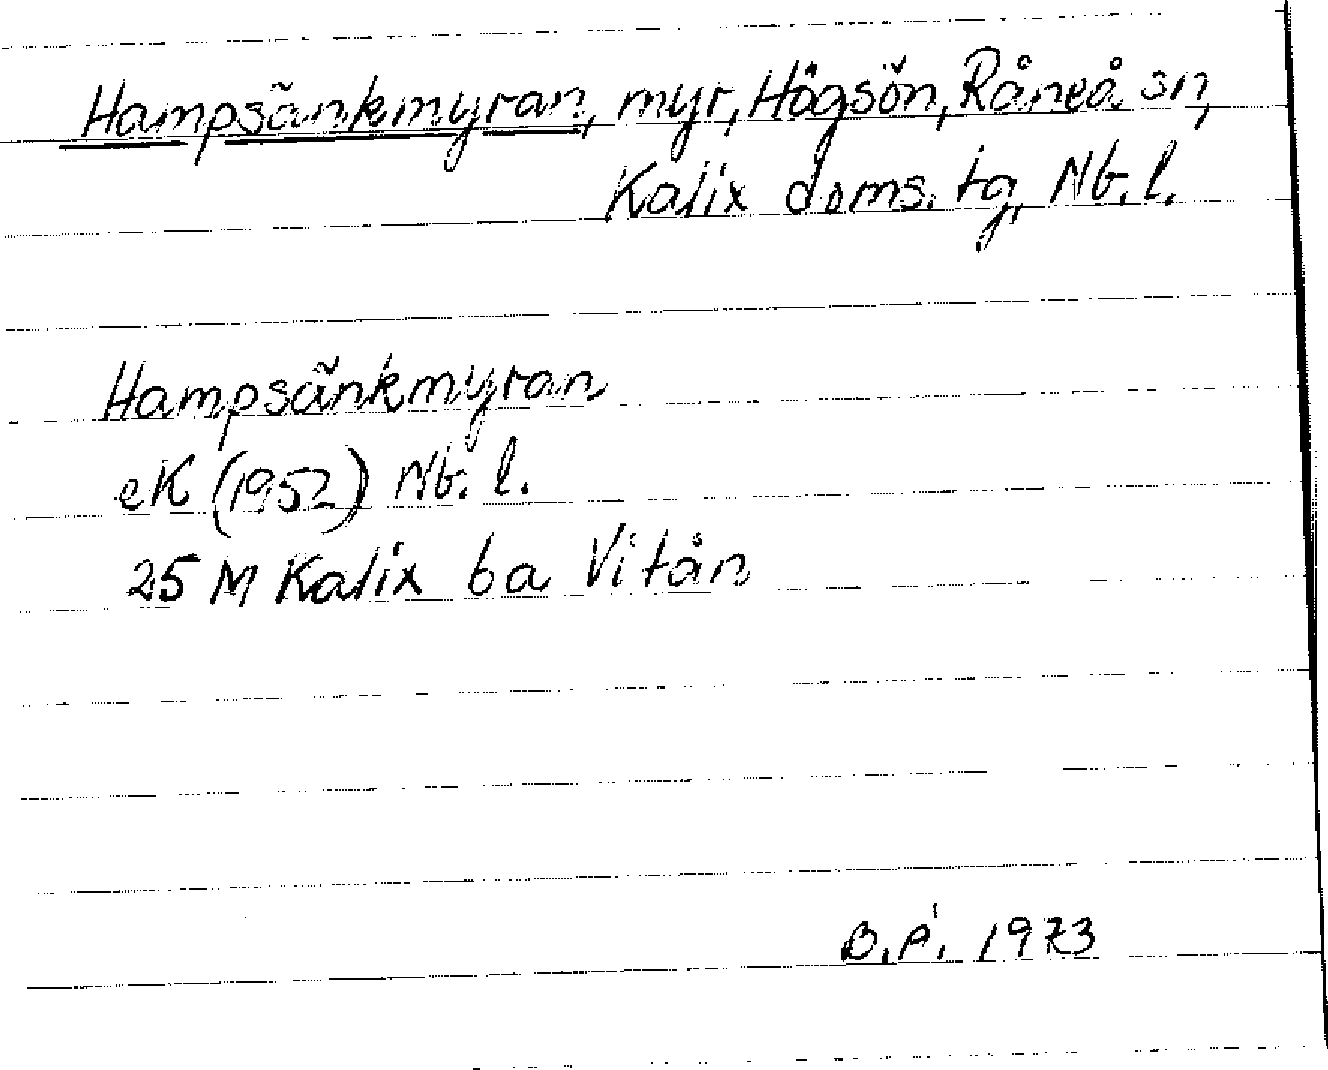 Hampsänkmyran, myr, Högsön, Råneå sn,
Kalix doms. tg, Nb. l.
Hampsänkmyran
eK (1952) Nb. l.
25 M Kalix 6a Vitån
B.Å. 1973